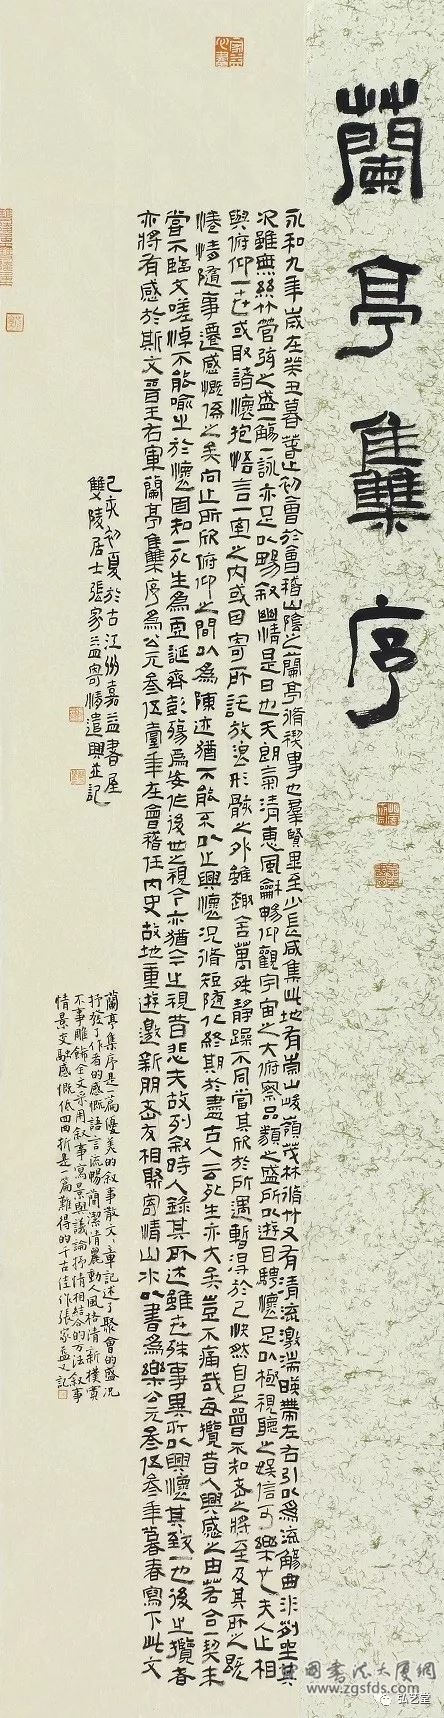 蘭亭集序
永和九年歲在癸丑暮春之初會於會稽山陰之蘭亭脩禊事也羣賢畢至少長咸集此地有崇山峻嶺茂林脩竹又有清流激湍暎帶左右引以為流觴曲水列坐其
次雖無絲竹管弦之盛一觴一詠亦足以暢敘幽情是日也天朗氣清惠風龢暢仰觀宇宙之大府察品類之盛所以遊目騁懷足以極視聽之娛信可樂也夫人之相
與俯仰一世或取諸懷抱悟言一室之內或因寄所託放浪形骸之外雖趣舍萬殊靜躁不同當其欣於所遇暫得於己快然自足曾不知老之將至及其所之既
惓情隨事遷感慨係之矣向之所欣俯仰之間以為陳迹猶不能不以之興懷況脩短隨化終期於盡古人云死生亦大矣豈不痛哉每攬昔人興感之由若合一契未
嘗不臨文嗟悼不能喻之於懷固知一死生為虛誕齊彭殤為妄作後世之視今亦猶今之視昔悲夫故列敘時人錄其所述雖世殊事異所以興懷其致一也後之攬者
亦將有感於斯文晉王右軍蘭亭集序為公元叁伍壹年在會稽任內史故地重遊邀新朋老友相聚寄情山水以書為樂公元叁伍叁年暮春寫下此文
己亥初夏於古江州嘉益書屋
雙陵居士張家益寄情遣興並記
蘭亭集序是一篇優美的敘事散文文章記述了聚會的盛況
抒發了作者的感慨語言流暢簡潔清麗動人風格清新樸實
不事雕飾全文采用敘事寫景與議論抒情相結合的方法敘事
情景交融感慨低回曲折是一篇難得的千古佳作張家益又記
中国书法大厦网
www.zgsfds.com
弘艺堂